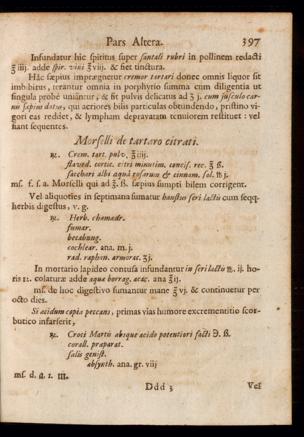 Pars Altera. 397
Infundatur hic spiritus super santali rubri in pollinem redacti
℥ iiij. adde spir. vini ℥viij. & fiet tinctura.
Hâc sæpius imprægnetur cremor tartari donec omnis liquor sit
imbibitus, terantur omnia in porphyrio summa cum diligentia ut
singula probè uniantur, & fit pulvis delicatus ad ʒ j. cum jusculo car-
nis sæpius datur, qui acriores bilis particulas obtundendo, pristino vi-
gori eas reddet, & lympham depravatam tenuiorem restituet : vel
fiant sequentes.
Morselli de tartaro citrati.
℞. Crem. tart. pulv. ℥iiij.
flaved. cortic. citri minutim. concis. rec. ℥ ß.
sacchari albi aquâ rosarum & cinnam. sol. ℔ j.
mſ. f. s. a. Morselli qui ad ʒ. ß. sæpius sumpti bilem corrigent.
Vel aliquoties in septimana sumatur haustus seri lactis cum seqq.
herbis digestus, v. g.
℞. Herb. chamedr.
fumar.
becabung.
cochlear. ana. m. j.
rad. raphan. armorac. ʒj.
In mortario lapideo contusa infundantur in seri lactis ℔. ij. ho-
ris 12. colaturæ adde aquæ borrag. acac. ana ℥ij.
mſ. de hoc digestivo sumantur mane ℥ vj. & continuetur per
octo dies.
Si acidum copia peccans, primas vias humore excrementitio scor-
butico infarserit,
℞. Croci Martis absque acido potentiori facti Э. ß.
corall. præparat.
salis genist.
absynth. ana. gr. viij
mſ. d. a. 1. III.
Ddd 3 Vel